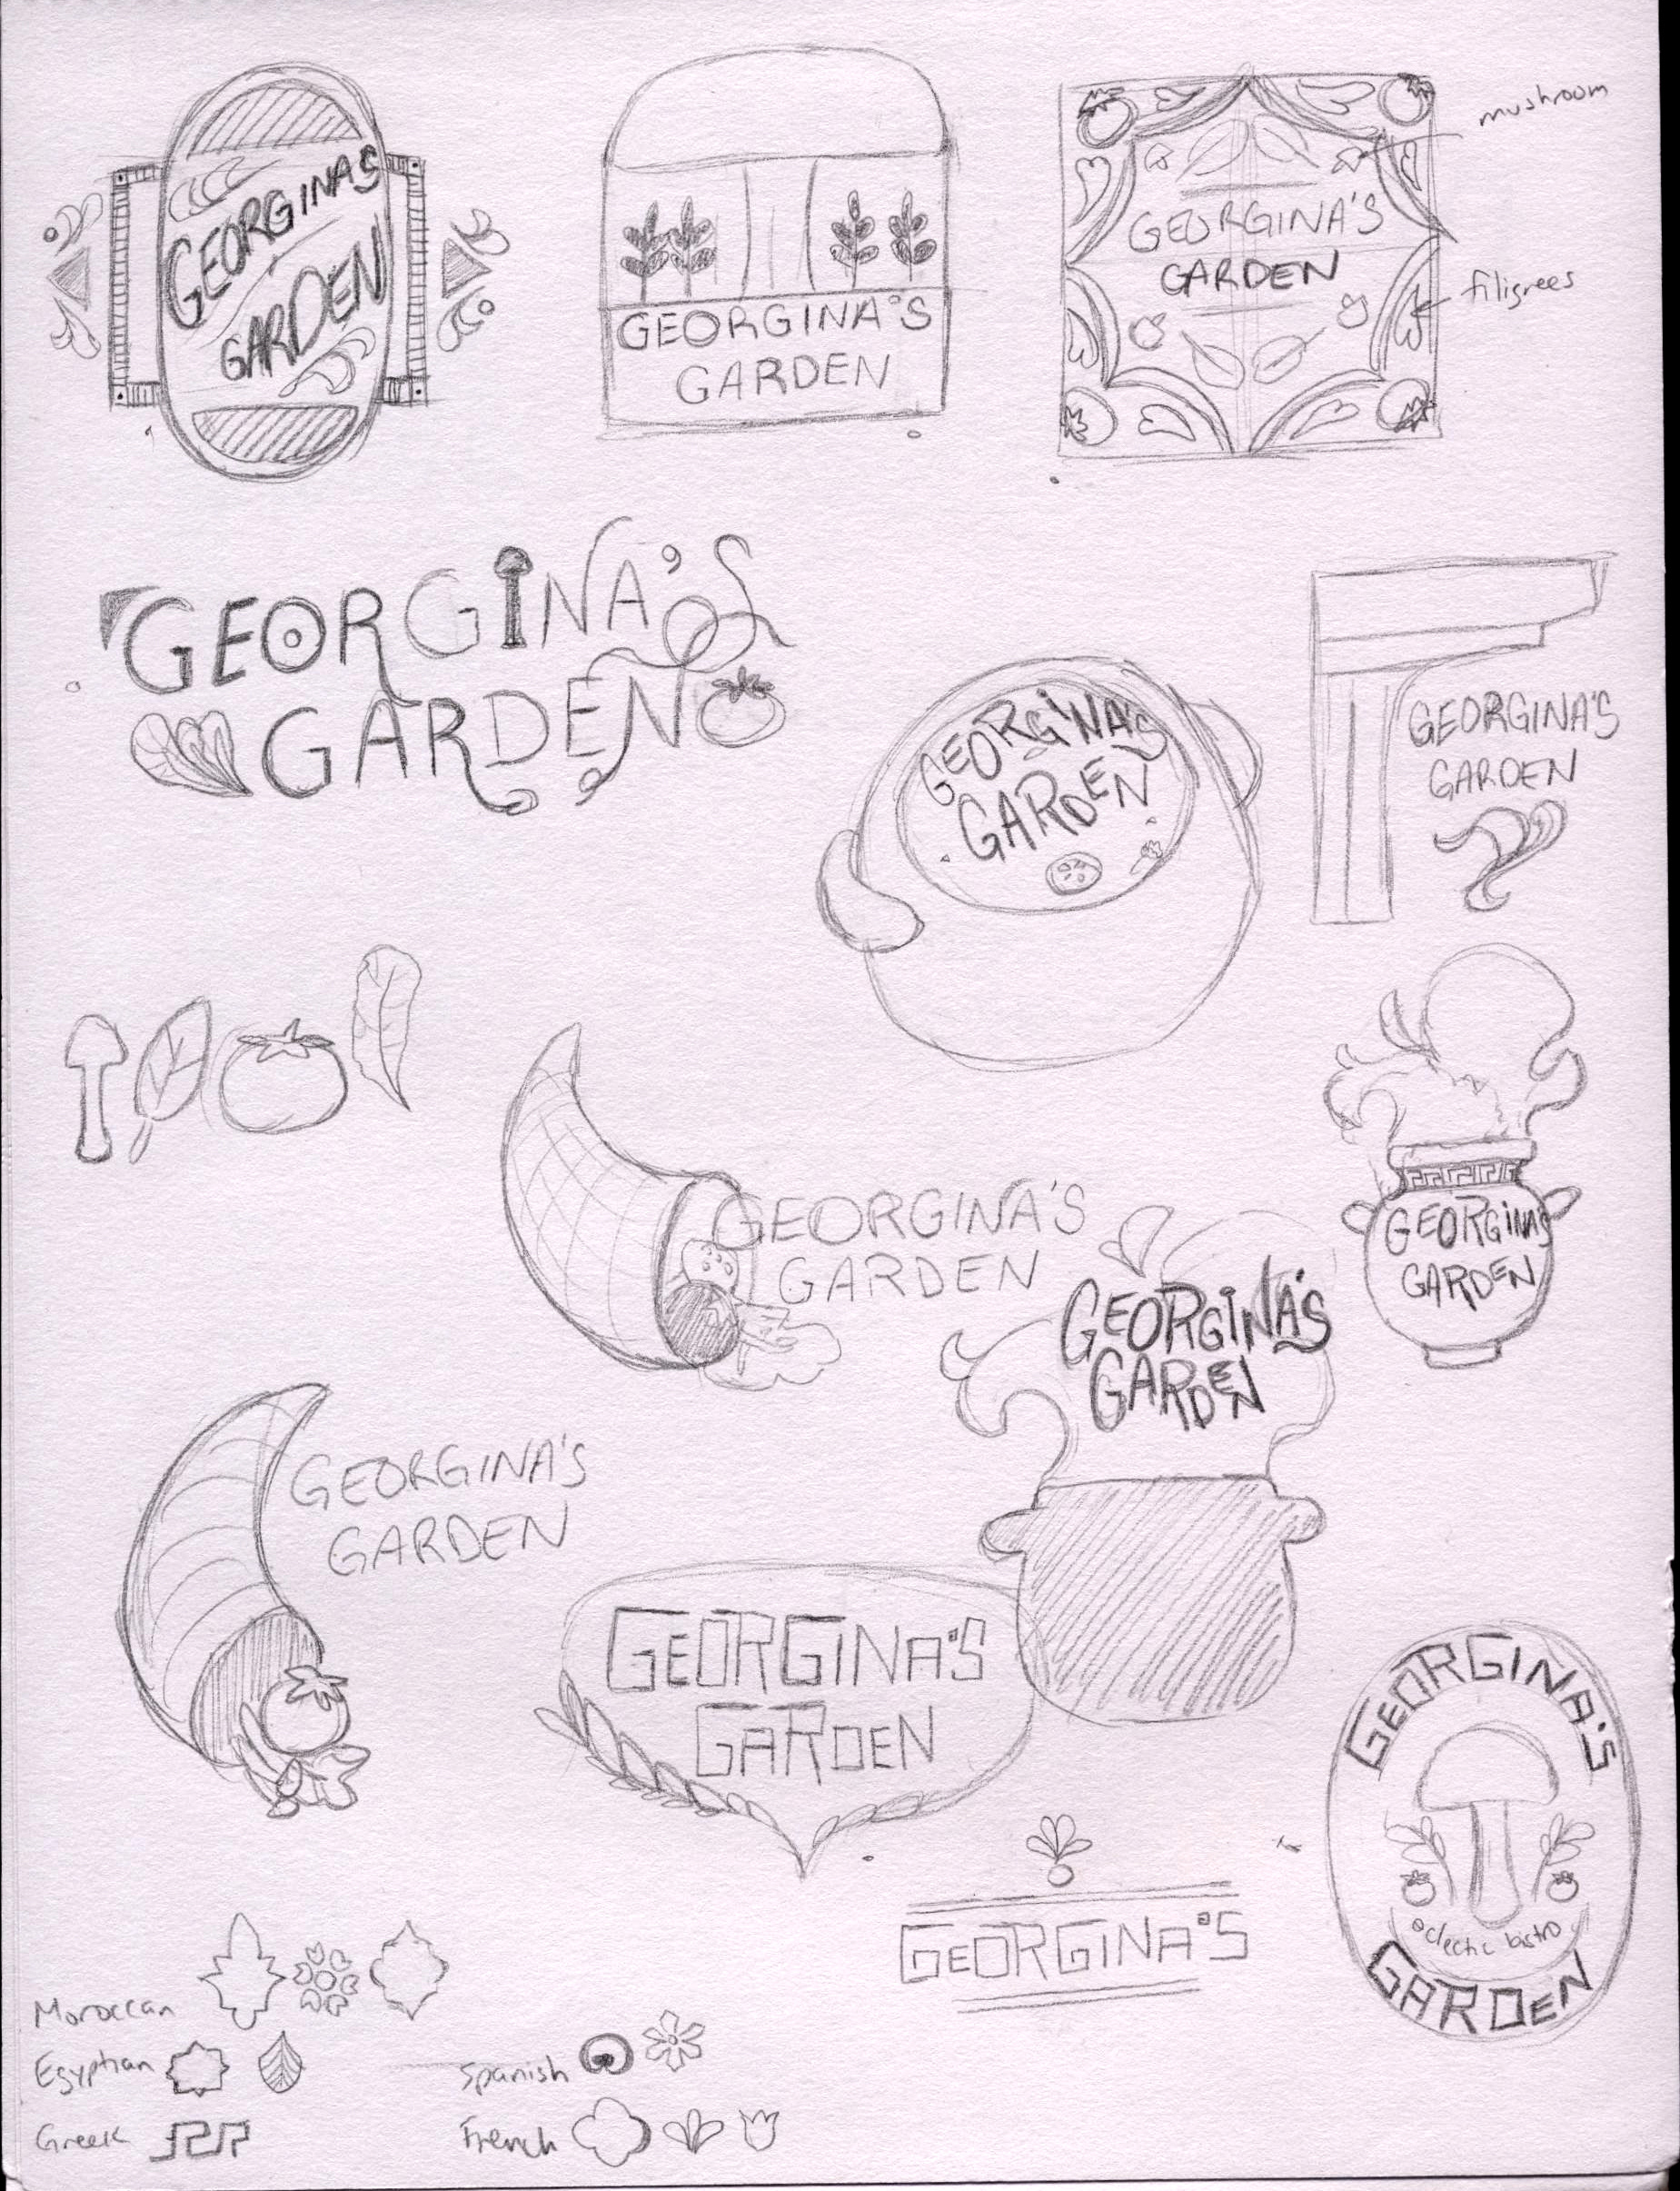 GEORGINAS
GARDEN
GEORGINA'S
GARDEN
GEORGINA'S
GARDEN
mushroom
filigrees
GEORGINA'S
GARDEN
GEORGINA'S
GARDEN
GEORGINA'S
GARDEN
GEORGINA'S
GARDEN
GEORGINA'S
GARDEN
GEORGINA'S
GARDEN
GEORGINA'S
GARDEN
GEORGINA'S
GARDEN
GEORGINA'S
GARDEN
eclectic bistro
GEORGINA'S
Moroccan
Egyptian
Greek
Spanish
French